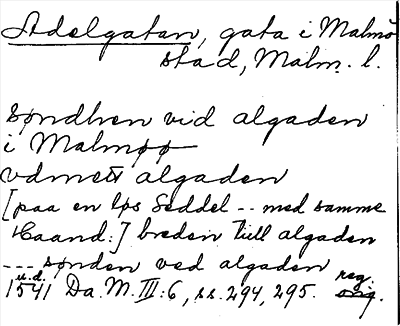 Adelgatan, gata i Malmö
stad, Malm. l.
søndhen vid algaden
i Malmøø
vdmett algaden
[paa en løs Seddel -- med samme
Haand:] breden till algaden
--- sønden ved algaden
u.d.
1541 Da. M. III:6, ss. 294, 295. reg.
orig.